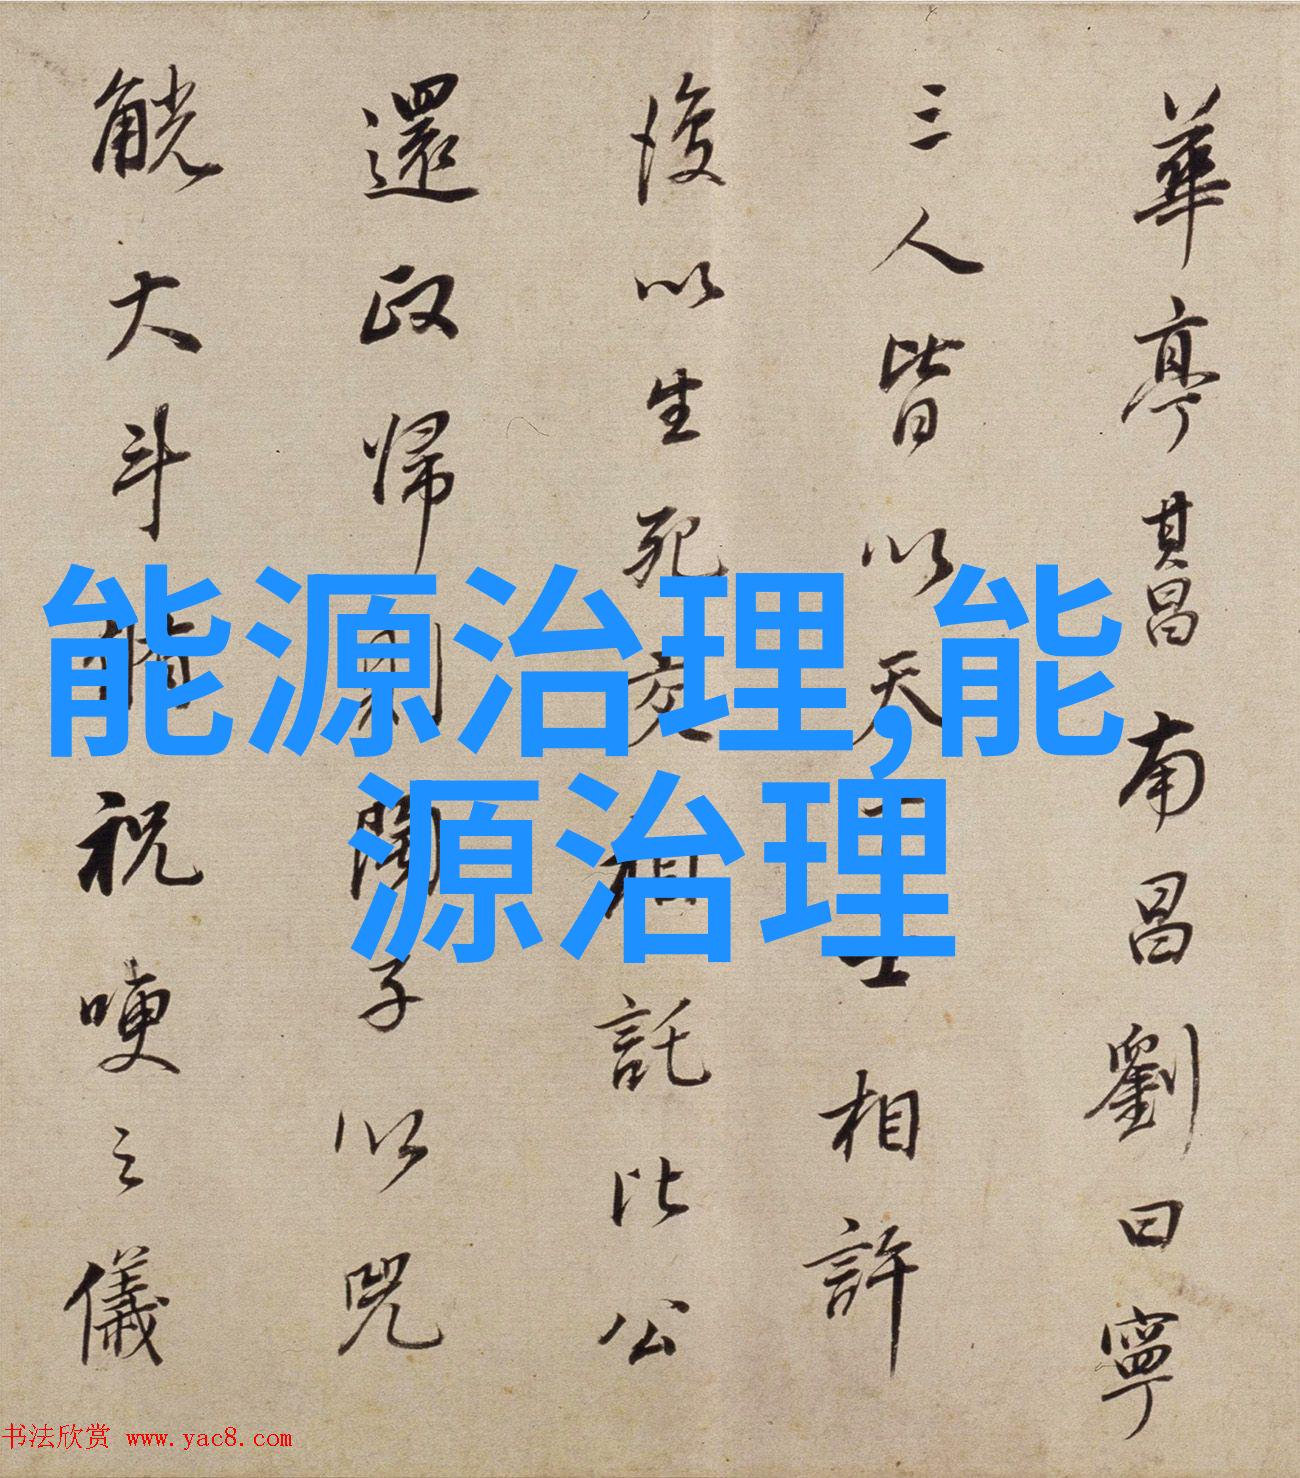 華亭其昌南昌劉曰寧
三人皆以天下士相許
後以生死交相託比公
還政歸則子以兕
觥大斗祝哽之儀
能源治理,能
源治理
书法欣赏 www.yac8.com